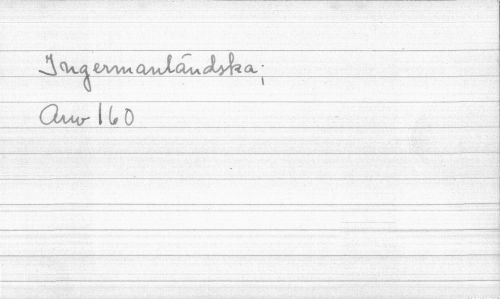 Ingermanländska;
Anv 160